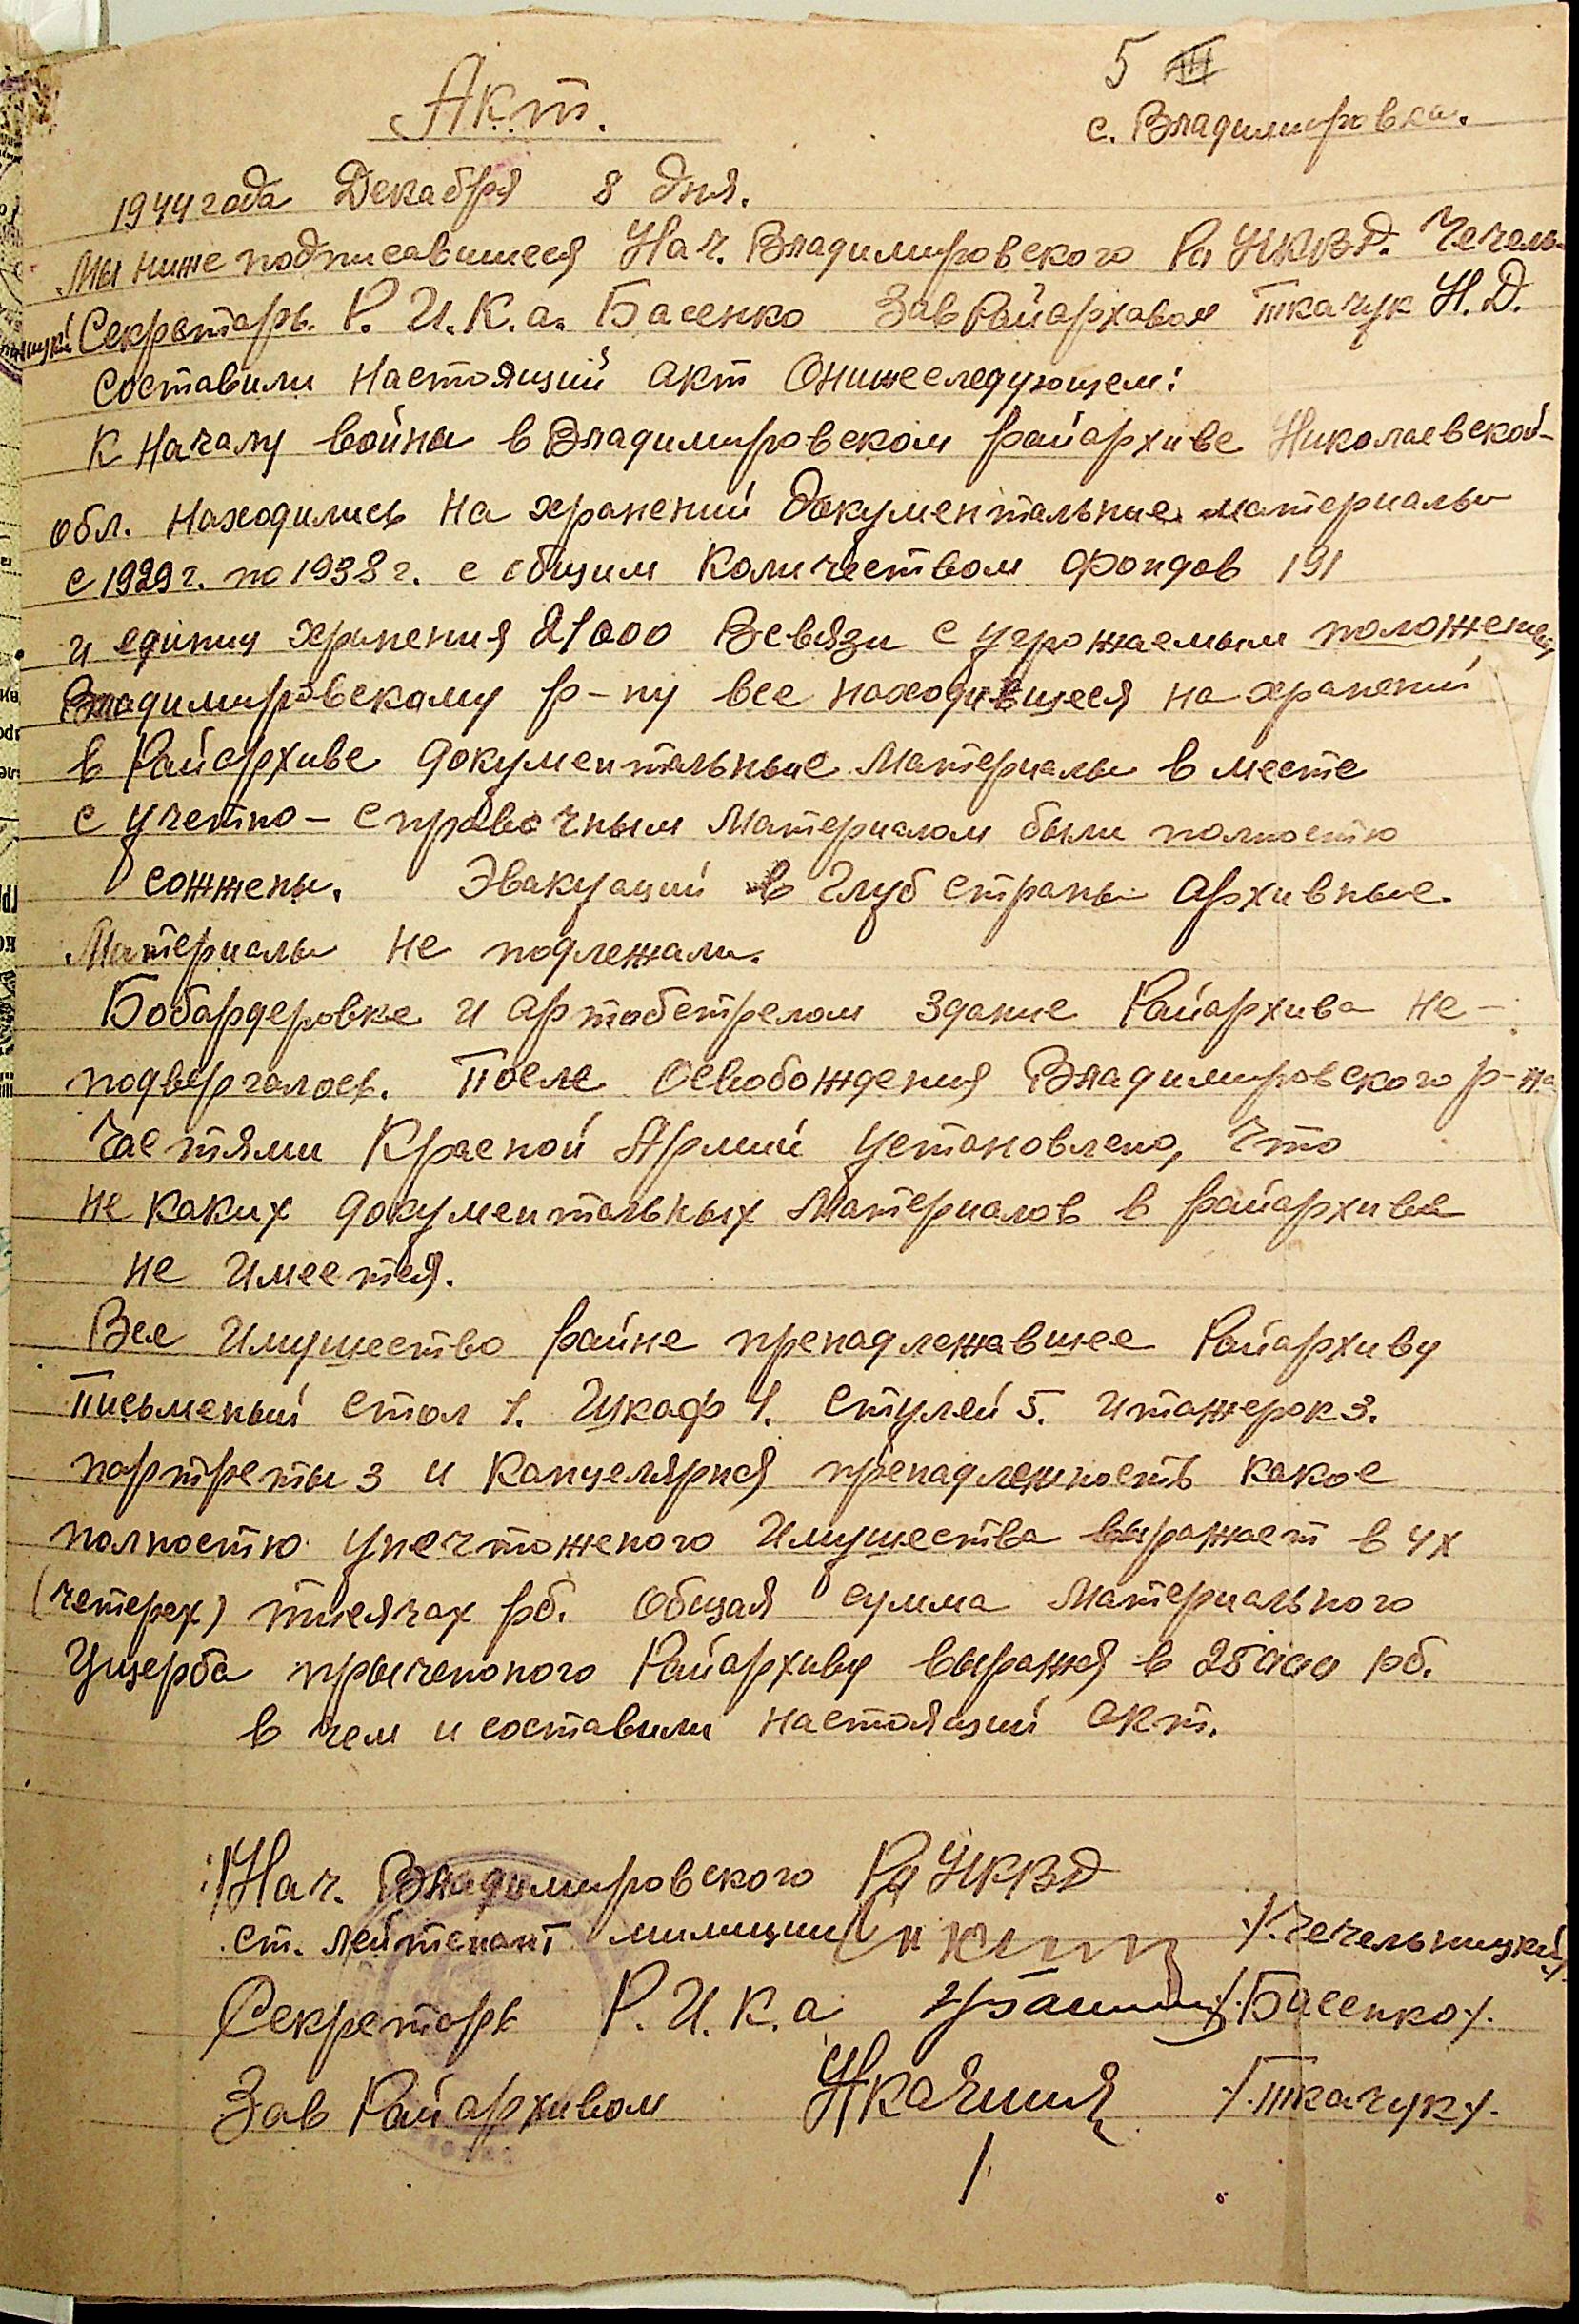 5
Акт.
с. Владимировка.
1944 года Декабря 8 дня.
Мы ниже подписавшиеся Нач. Владимировского Ра НКВД. Чечель-
ницкий Секретарь. Р. И. К. а. Басенко Зав Райархавом Ткачук Н. Д.
составили настоящий акт Онижеследующем:
К началу войны в Владимировском райархиве Николаевской-
обл. находились на хранений документальные материалы
с 1929 г. по 1938 г. с общим количеством фондов 191
и единиц хранения 21000 Всвязи с угрожаемым положением
Владимировскому р-ну все находившееся на хранений
в Райархиве документальные материалы в месте
с учетно-справочным материалом были полностю
сожжены. Эвакуаций в глуб страны архивные.
Материалы не подлежали.
Бобардеровке и артобстрелом здание Райархива не-
подвергалось. После освобождения Владимировского р-на
частями Красной Армий установлено, что
не каких документальных материалов в райархиве
не имеется.
Все имущество райне преnадлежавшее Райархиву
письменый стол 1. Шкаф 1. стулей 5. итажерок 3.
портреты 3 и канцелярия препадлежность какое
полностю унечтоженого имущества выражает в 4х
(четерех) тисячах рб. общая сумма материального
Ущерба прыченоного Райархиву выражя в 25000 рб.
в чем и составили настоящий акт.
Нач. Владимировского Ра НКВД
ст. лейтенант милиции /.Чечельницкий./
Секретарь Р. И. К. а /.Басенко./.
Зав Райархивом /.Ткачук./.